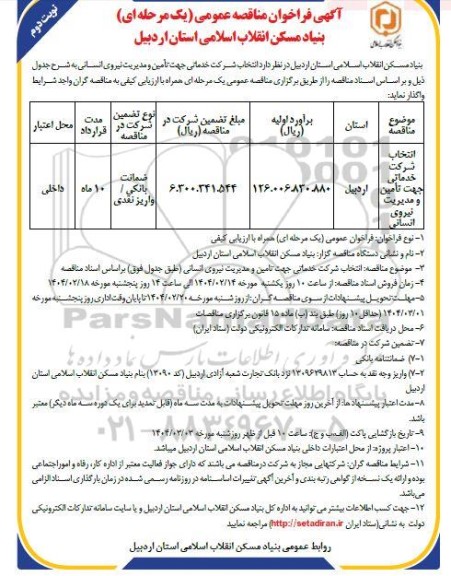 نوبت دوم
آگهی فراخوان مناقصه عمومی (یک مرحله ای)
بنیاد مسکن انقلاب اسلامی استان اردبیل
بنیاد مسکن انقلاب اسلامی استان اردبیل در نظر دارد انتخاب شرکت خدماتی جهت تأمین و مدیریت نیروی انسانی به شرح جدول
ذیل و بر اساس اسناد مناقصه را از طریق برگزاری مناقصه عمومی یک مرحله ای همراه با ارزیابی کیفی به مناقصه گران واجد شرایط
واگذار نماید:
موضوع مناقصه | استان | برآورد اولیه (ریال) | مبلغ تضمین شرکت در مناقصه (ریال) | نوع تضمین شرکت در مناقصه | مدت قرارداد | محل اعتبار
انتخاب شرکت خدماتی جهت تأمین و مدیریت نیروی انسانی | اردبیل | ۱۲۶.۰۰۶.۸۳۰.۸۸۰ | ۶.۳۰۰.۳۴۱.۵۴۴ | ضمانت بانکی / واریز نقدی | ۱۰ ماه | داخلی
۱- نوع فراخوان: فراخوان عمومی (یک مرحله ای) همراه با ارزیابی کیفی
۲- نام و نشانی دستگاه مناقصه گزار: بنیاد مسکن انقلاب اسلامی استان اردبیل
۳- موضوع مناقصه: انتخاب شرکت خدماتی جهت تأمین و مدیریت نیروی انسانی (طبق جدول فوق) براساس اسناد مناقصه
۴- زمان فروش اسناد مناقصه: از ساعت ۱۰ روز یکشنبه مورخه ۱۴۰۴/۰۲/۱۴ الی ساعت ۱۴ روز پنجشنبه مورخه ۱۴۰۴/۰۲/۱۸
۵- مهلت تحویل پیشنهادات از سوی مناقصه گران: از روز شنبه مورخه ۱۴۰۴/۰۲/۲۰ تا پایان وقت اداری روز پنجشنبه مورخه
۱۴۰۴/۰۳/۰۱ (حداقل ۱۰ روز) طبق بند (ب) ماده ۱۵ قانون برگزاری مناقصات
۶- محل دریافت اسناد مناقصه: سامانه تدارکات الکترونیکی دولت (ستاد ایران)
۷- تضمین شرکت در مناقصه:
۷-۱) ضمانتنامه بانکی
۷-۲) واریز وجه نقد به حساب ۱۳۰۹۶۲۹۸۱۳ نزد بانک تجارت شعبه آزادی اردبیل (کد ۱۳۰۹۰) بنام بنیاد مسکن انقلاب اسلامی استان
اردبیل
۸- مدت اعتبار پیشنهادها: از آخرین روز مهلت تحویل پیشنهادات به مدت سه ماه (قابل تمدید برای یک دوره سه ماه دیگر) معتبر
باشد.
۹- تاریخ بازگشایی پاکت (الف،ب و ج): ساعت ۱۰ قبل از ظهر روز شنبه مورخه ۱۴۰۴/۰۳/۰۳
۱۰- اعتبار پروژه: از محل اعتبارات داخلی بنیاد مسکن انقلاب اسلامی استان اردبیل میباشد.
۱۱- شرایط مناقصه گران: شرکتهایی مجاز به شرکت در مناقصه می باشند که دارای جواز فعالیت معتبر از اداره کار، رفاه و امور اجتماعی
بوده و ارائه یک نسخه از گواهی رتبه بندی و آخرین آگهی تغییرات اساسنامه در روزنامه رسمی شده در زمان بارگذاری اسناد الزامی
می باشد.
۱۲- جهت کسب اطلاعات بیشتر می توانید به اداره کل بنیاد مسکن انقلاب اسلامی استان اردبیل و یا سایت سامانه تدارکات الکترونیکی
دولت به نشانی (ستاد ایران http://setadiran.ir) مراجعه نمایید
روابط عمومی بنیاد مسکن انقلاب اسلامی استان اردبیل